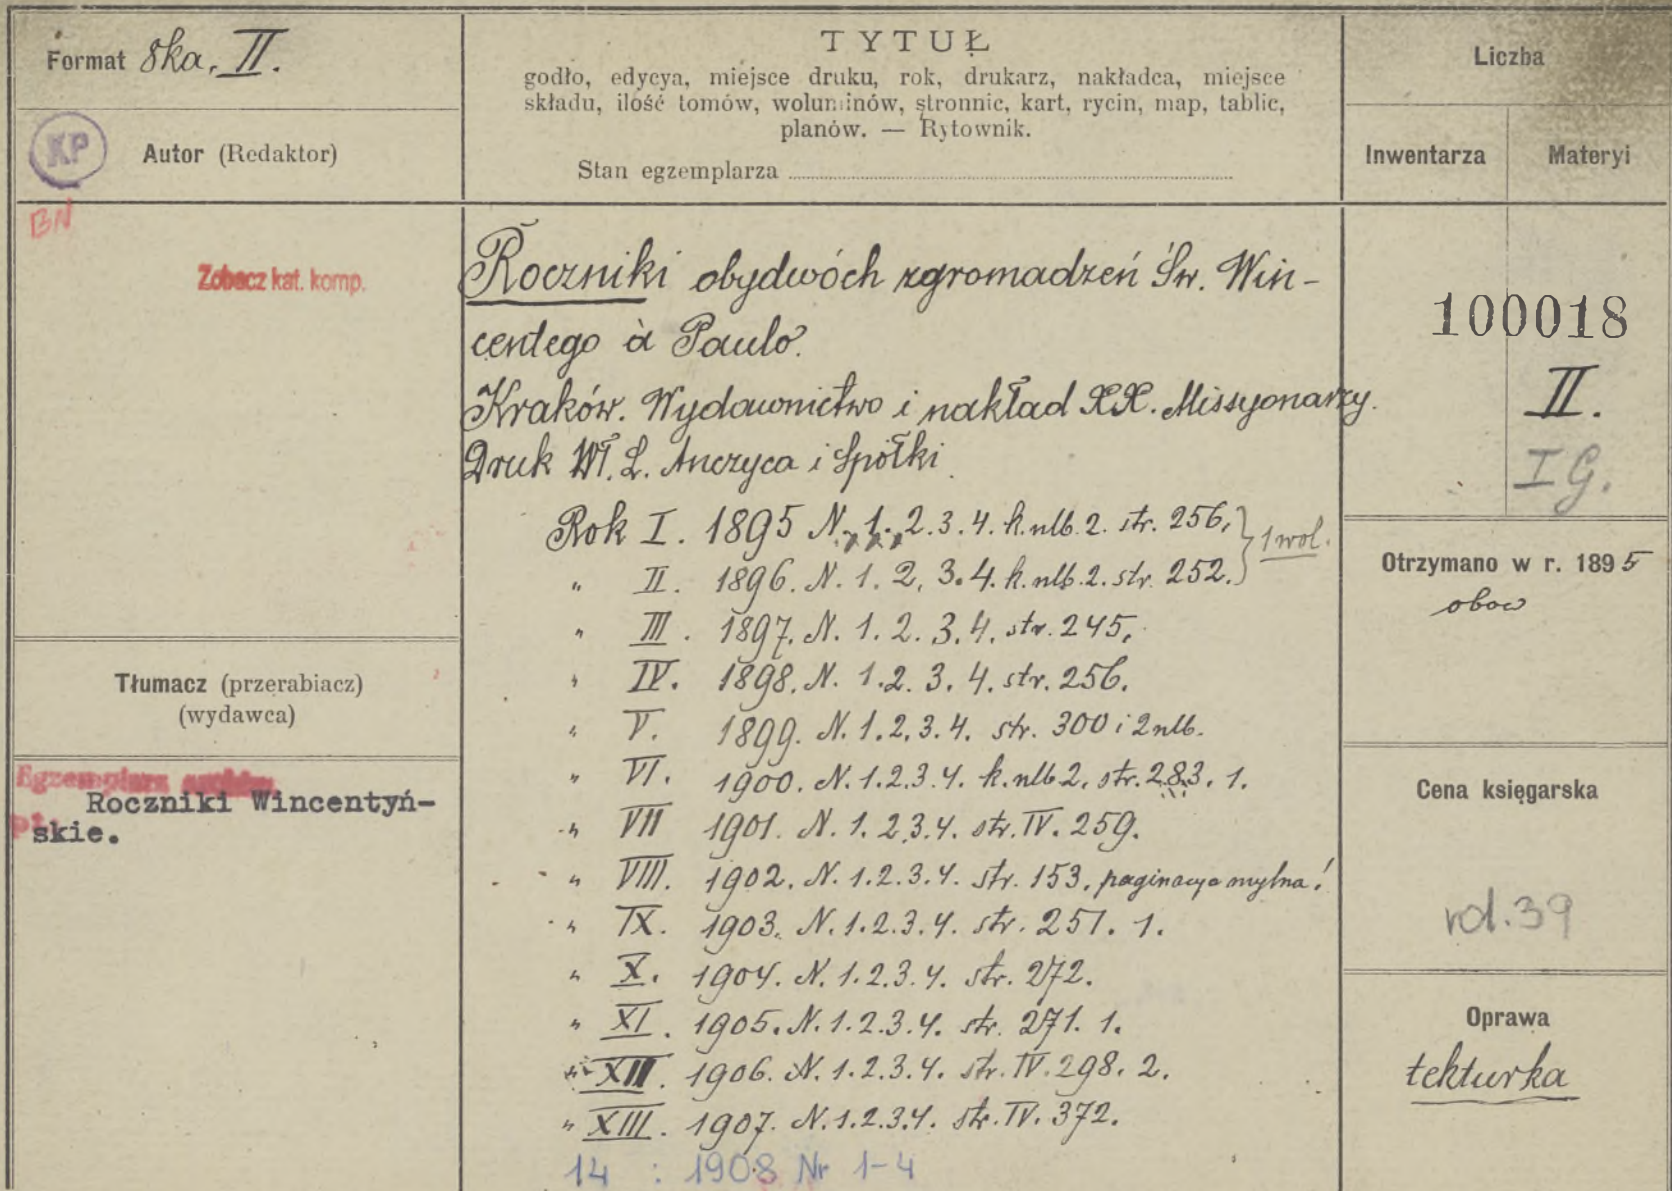 Format 8ka. II.
KP
Autor (Redaktor)
BN
Zobacz kat. komp.
Tłumacz (przerabiacz)
(wydawca)
Egzemplarz
Roczniki Wincentyń-
skie.
TYTUŁ
godło, edycya, miejsce druku, rok, drukarz, nakładca, miejsce
składu, ilość tomów, woluminów, stronnic, kart, rycin, map, tablic,
planów. — Rytownik.
Stan egzemplarza
Roczniki obydwóch zgromadzeń Św. Win-
centego à Paulo.
Kraków. Wydawnictwo i nakład XX. Missyonarzy.
Druk Wł. L. Anczyca i Spółki
Rok I. 1895 N. 1. 2. 3. 4. k. nlb. 2. str. 256. } 1 wol.
„ II. 1896. N. 1. 2. 3. 4. k. nlb. 2. str. 252.
„ III. 1897. N. 1. 2. 3. 4. str. 245.
„ IV. 1898. N. 1. 2. 3. 4. str. 256.
„ V. 1899. N. 1. 2. 3. 4. str. 300 i 2 nlb.
„ VI. 1900. N. 1. 2. 3. 4. k. nlb 2. str. 283. 1.
„ VII 1901. N. 1. 2. 3. 4. str. IV. 259.
„ VIII. 1902. N. 1. 2. 3. 4. str. 153. paginacya mylna!
„ IX. 1903. N. 1. 2. 3. 4. str. 251. 1.
„ X. 1904. N. 1. 2. 3. 4. str. 272.
„ XI. 1905. N. 1. 2. 3. 4. str. 271. 1.
„ XII. 1906. N. 1. 2. 3. 4. str. IV. 298. 2.
„ XIII. 1907. N. 1. 2. 3. 4. str. IV. 372.
14 : 1908 Nr 1-4
Liczba
Inwentarza Materyi
100018
II.
I G.
Otrzymano w r. 1895
obow
Cena księgarska
vol. 39
Oprawa
tekturka